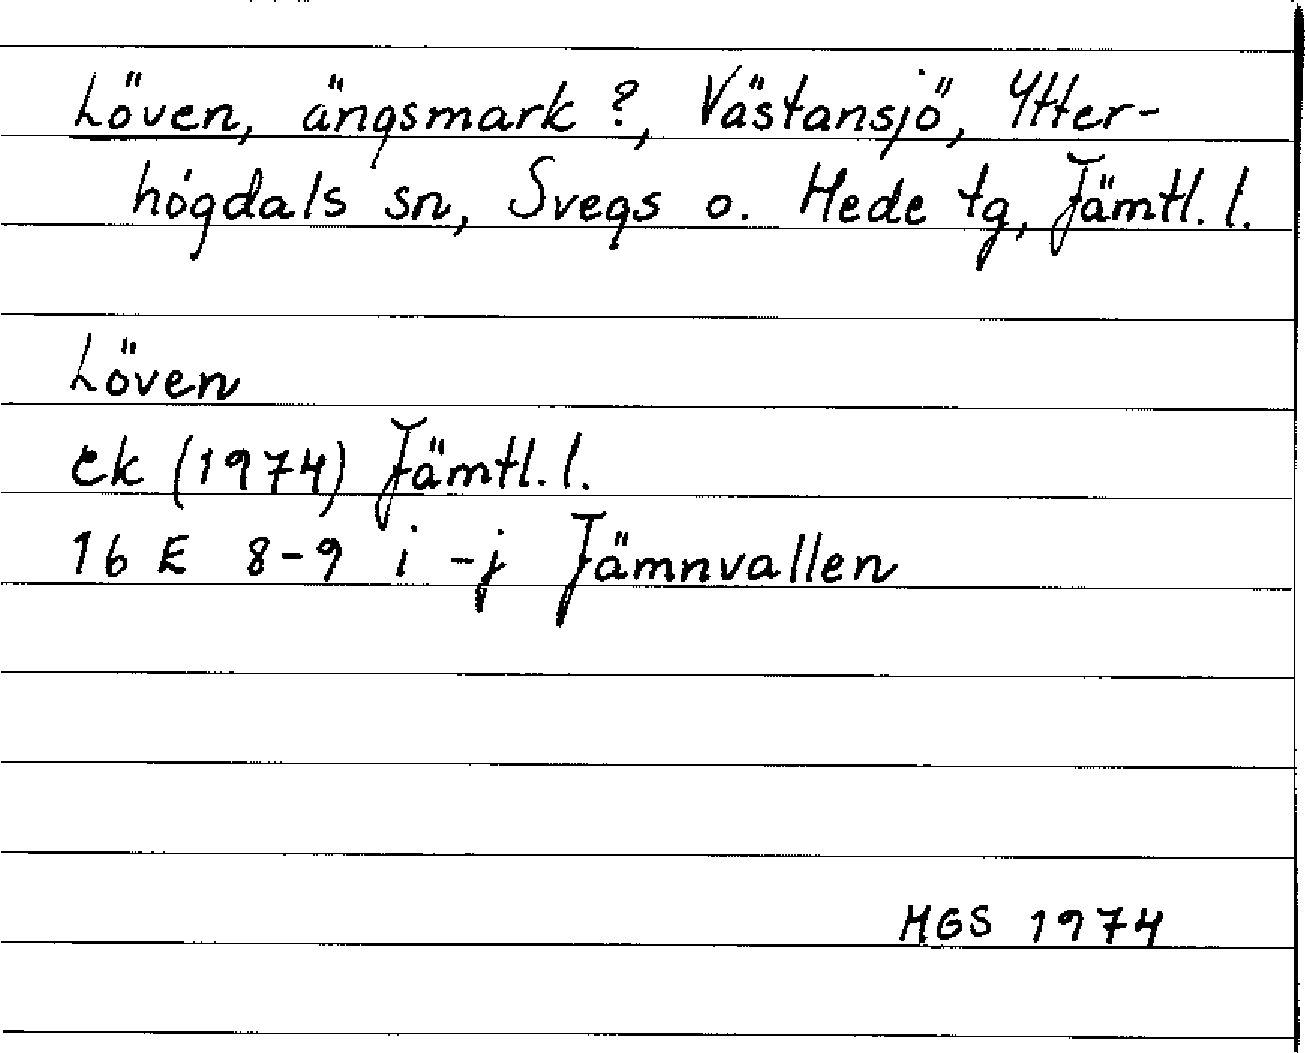 Löven, ängsmark?, Västansjö, Ytter-
högdals sn, Svegs o. Hede tg, Jämtl. l.
Löven
ek (1974) Jämtl. l.
16 E 8-9 i -j Jämnvallen
MGS 1974